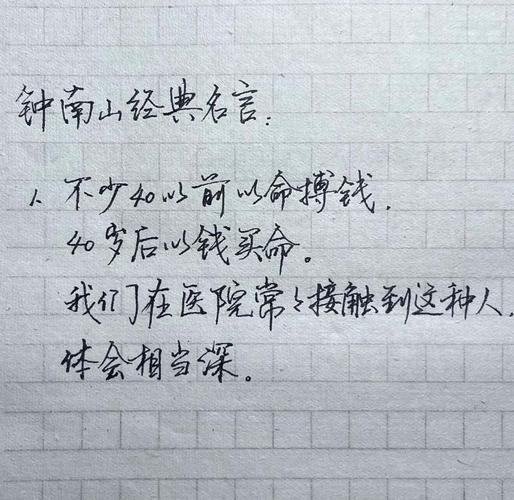 钟南山经典名言:
1、不少40以前以命搏钱,
40岁后以钱买命。
我们在医院常々接触到这种人,
体会相当深。